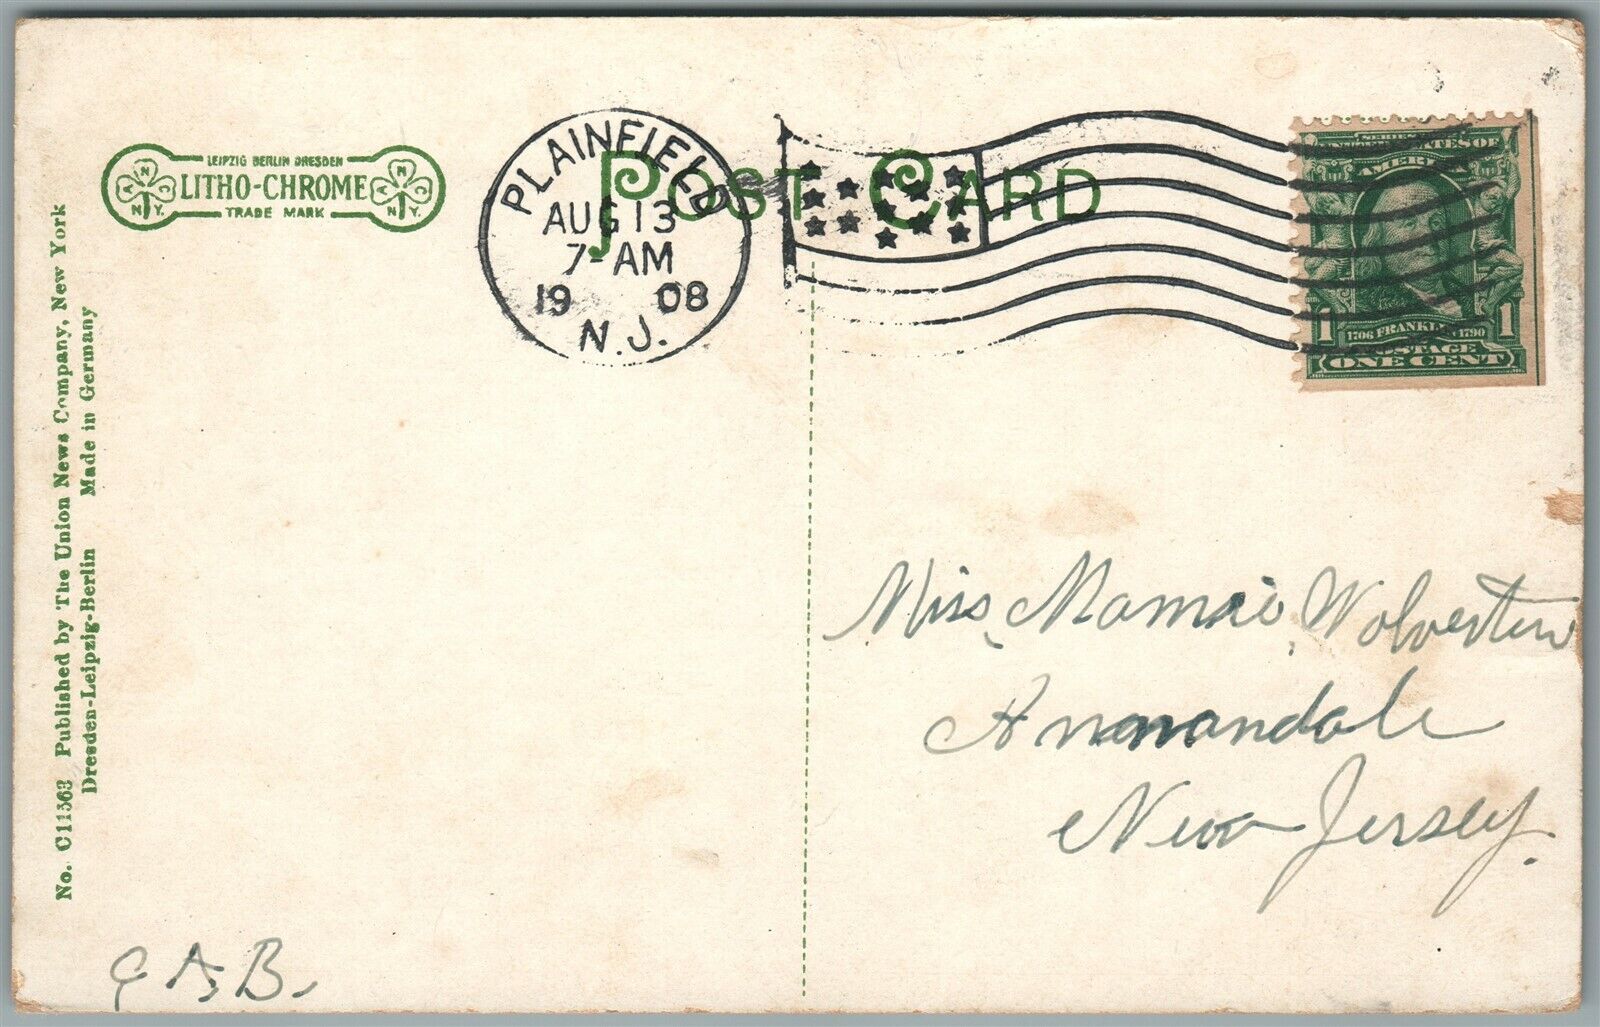 LEIPZIG BERLIN DRESDEN
LITHO-CHROME
TRADE MARK
A N C
N.Y.
A N C
N.Y.
POST CARD
PLAINFIELD
AUG 13
7-AM
19 08
N.J.
SERIES
UNITED STATES OF
AMERICA
1 1706 FRANKLIN 1790 1
POSTAGE
ONE CENT
No. C11563 Published by The Union News Company, New York
Dresden-Leipzig-Berlin Made in Germany
Miss Mamie Wolverton
Annandale
New Jersey.
A.B.